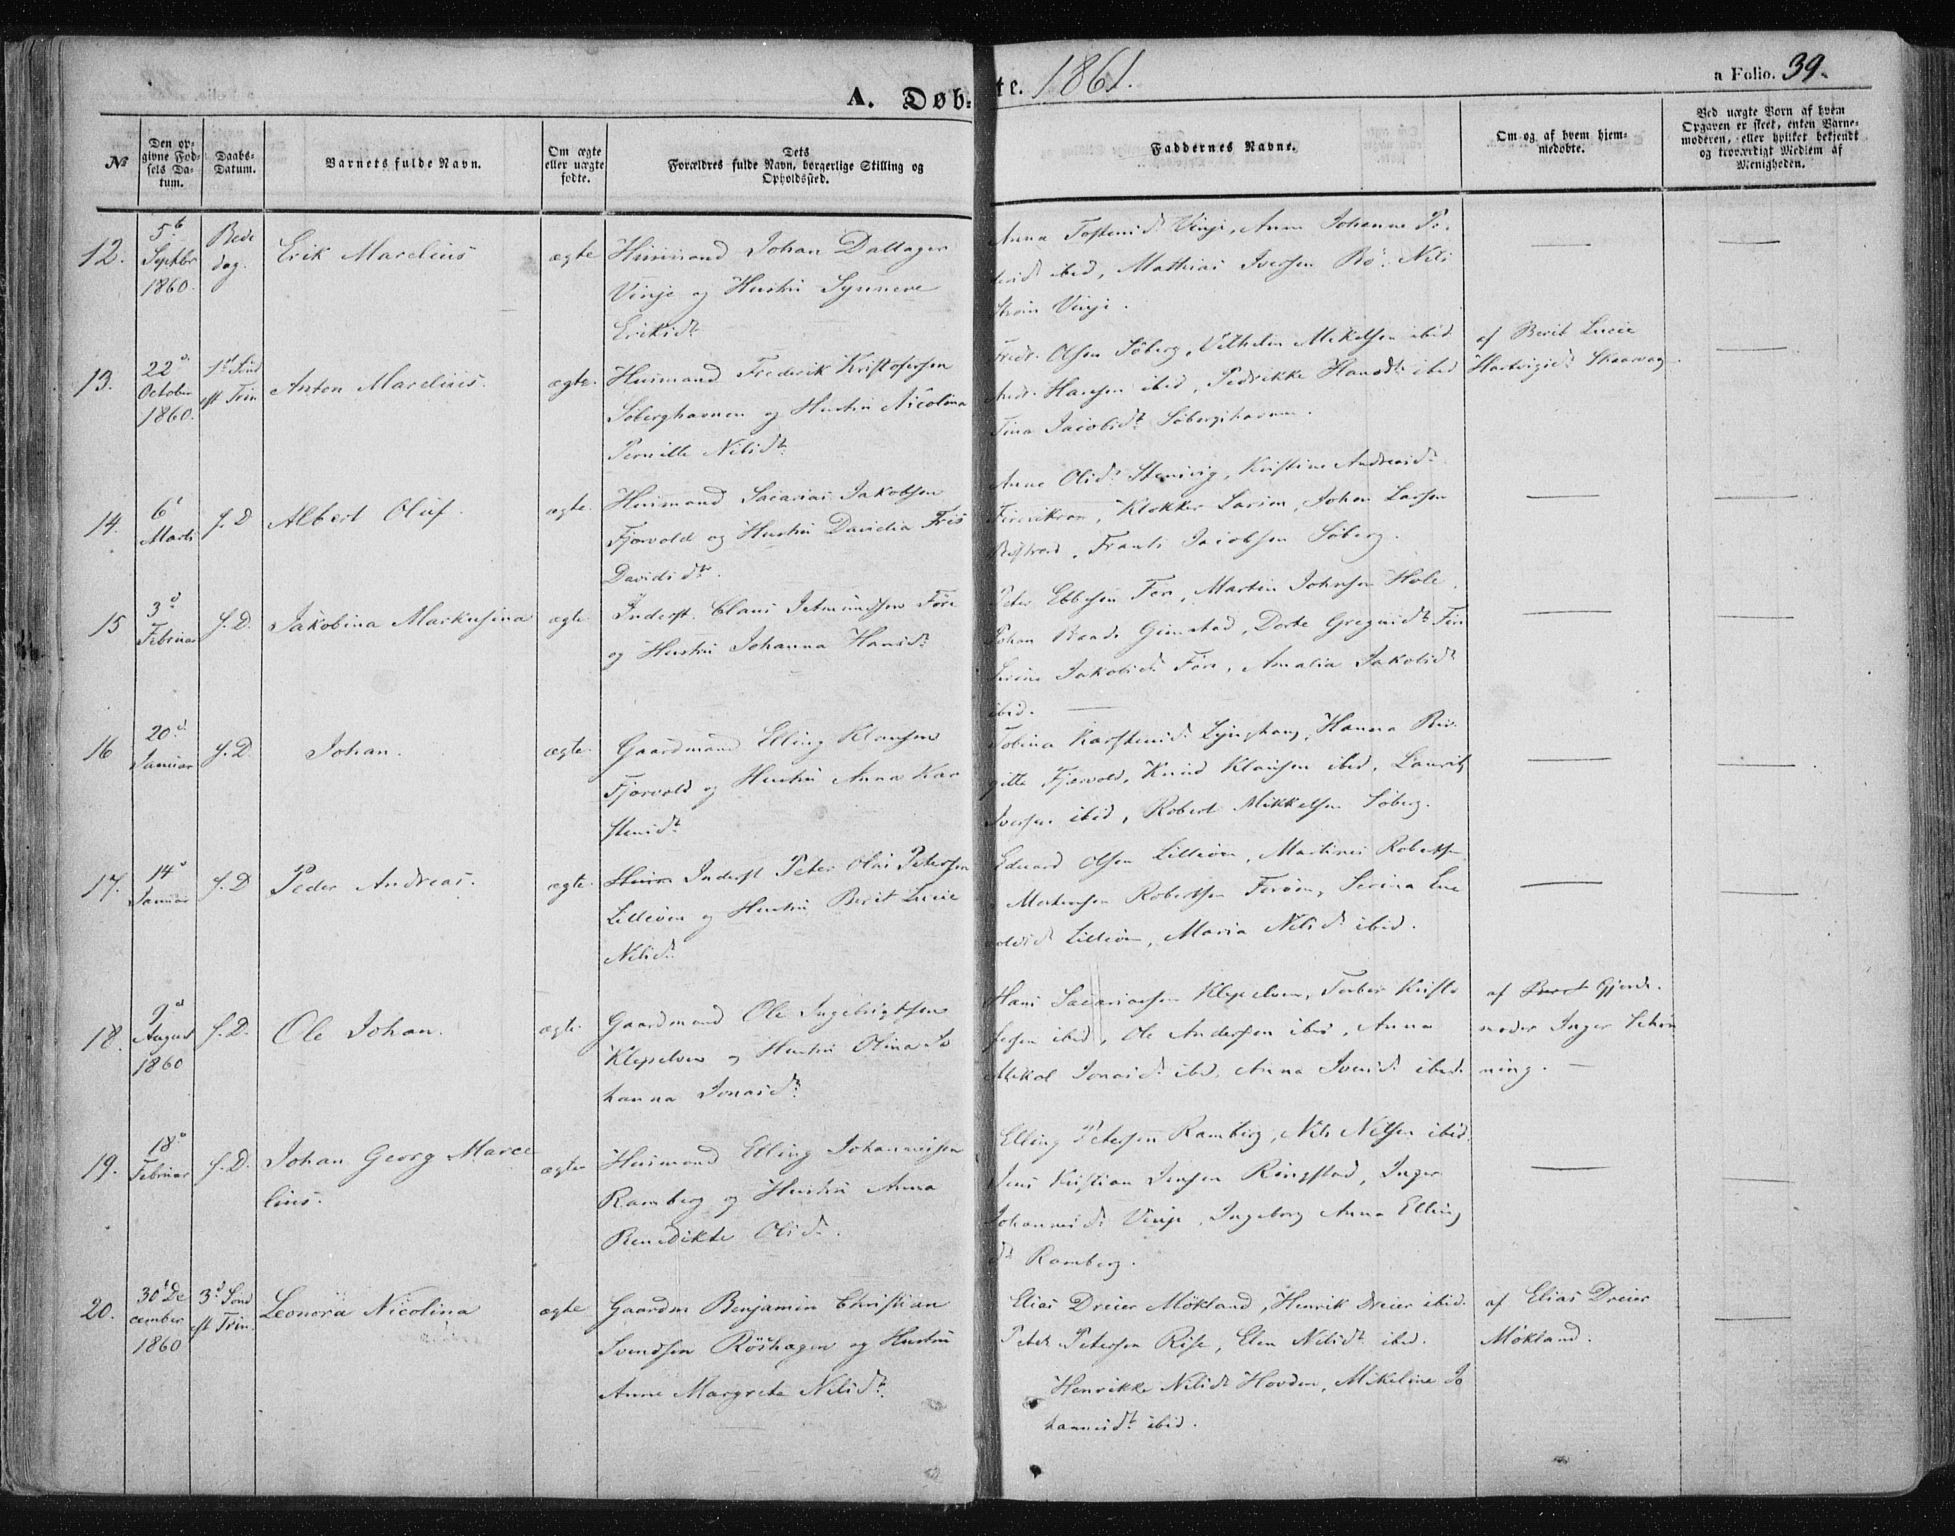 A. Døb-te. 1861.
a Folio. 39.
№
Den op-
givne Fød-
sels Da-
tum.
Daabs-
Datum.
Barnets fulde Navn.
Om ægte
eller uægte
fødte.
Dets
Forældres fulde Navn, borgerlige Stilling og
Opholdssted.
Faddernes Navne.
Om og af hvem hjem-
medøbte.
Ved uægte Born af hvem
Opgaven er skeet, enten Barne-
moderen, eller hvilket bekjendt
og troværdigt Medlem af
Menigheden.
12.
5te
Septbr
1860.
Bede
dag.
Erik Marelius
ægte
Huusmand Johan Dallager
Vinje og Hustru Synneve
Eriksdtr
Vinje, Anna Johanne
ibid, Mathias Iversen Bø. Nils
Vinje.
13.
22de
October
1860.
1st Sønd
eft Trin
Anton Marelius.
ægte.
Huusmand Frederik Kristofersen
Søberghavnen og Hustru Nicolina
Pernille Nilsdtr
Olsen Søberg, Vilhelm Mikelsen ibid
Andr. Hansen ibid, Pedrikke Hansdtr ibid
Tina Jacobsdtr Søberghavnen.
af Berit Lucie
Hartvigsdtr Skaarvag
14.
6te
Marts
J.D
Albert Oluf.
ægte.
Huusmand Sacarias Jakobsen
Fjærvold og Hustru Davidia Friis
Davidsdtr.
Anne Olsdtr Stensvig, Kristine Andreasdtr
Klokker Larsen, Johan Larsen
Frants Jacobsen Søberg.
15
3de
Februar
J.D.
Jakobina Markusina
ægte
Inderst. Claus Jetmundsen Føre
og Hustru Johanna Hansdtr
Peter Ebbesen Føre, Martin Johnsen Hole
Johan Gimstad, Dorte Gregusdtr Føre
Jakobsdtr Føre, Amalia Jakobsdtr
ibid.
16
20de
Januar
J.D
Johan.
ægte.
Gaardmand Elling Klausen
Fjærvold og Hustru Anna Kar
stensdtr
Tobina Karstensdtr Lynghaug, Hanna Bir
gitte Fjærvold, Knud Klausen ibid, Laurits
Iversen ibid, Robert Mikkelsen Søberg.
17.
14de
Januar
J.D
Peder Andreas.
ægte.
Inderst Peter Olai Petersen
Lilleøen og Hustru Berit Lucie
Nilsdtr
Eduard Olsen Lilleøen, Martinus Robertsen
Robertsen Serina
Lilleøen, Maria Nilsdtr ibid.
18.
9de
August
1860
J.D.
Ole Johan.
ægte.
Gaardmand Ole Ingebrigtsen
Klepelven og Hustru Olina Jo
hanna Jonasdtr
Hans Sacariasen Klepelven, Torber Kristo
fersen ibid, Ole Andersen ibid, Anna
Mikal Jonasdtr ibid, Anna Iversdtr ibid.
af Gjorde-
moder Inger Schøn
ning.
19.
18de
Februar
J.D.
Johan Georg Marce
lius.
ægte
Huusmand Elling Johannesen
Ramberg og Hustru Anna
Benedikte Olsdtr.
Elling Petersen Ramberg, Nils Nilsen ibid.
Jens Kristian Jensen Ringstad, Inger
Johannesdtr Vinje, Ingeborg Anna Elling
sdtr Ramberg.
20.
30te De
cember
1860
3de Sønd
eft Trin.
Leonora Nicolina
ægte
Gaardm Benjamin Christian
Svendsen Røshagen og Hustru
Anne Margrete Nilsdtr.
Elias Dreier Møkland, Henrik Dreier ibid.
Peder Petersen Rise, Elen Nilsdtr ibid.
Henrikke Nilsdtr Hovden, Mikeline Jo
hannesdtr ibid.
af Elias Dreier
Møkland.